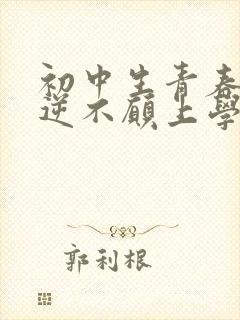 初中生青春
逆不愿上學
郭利根